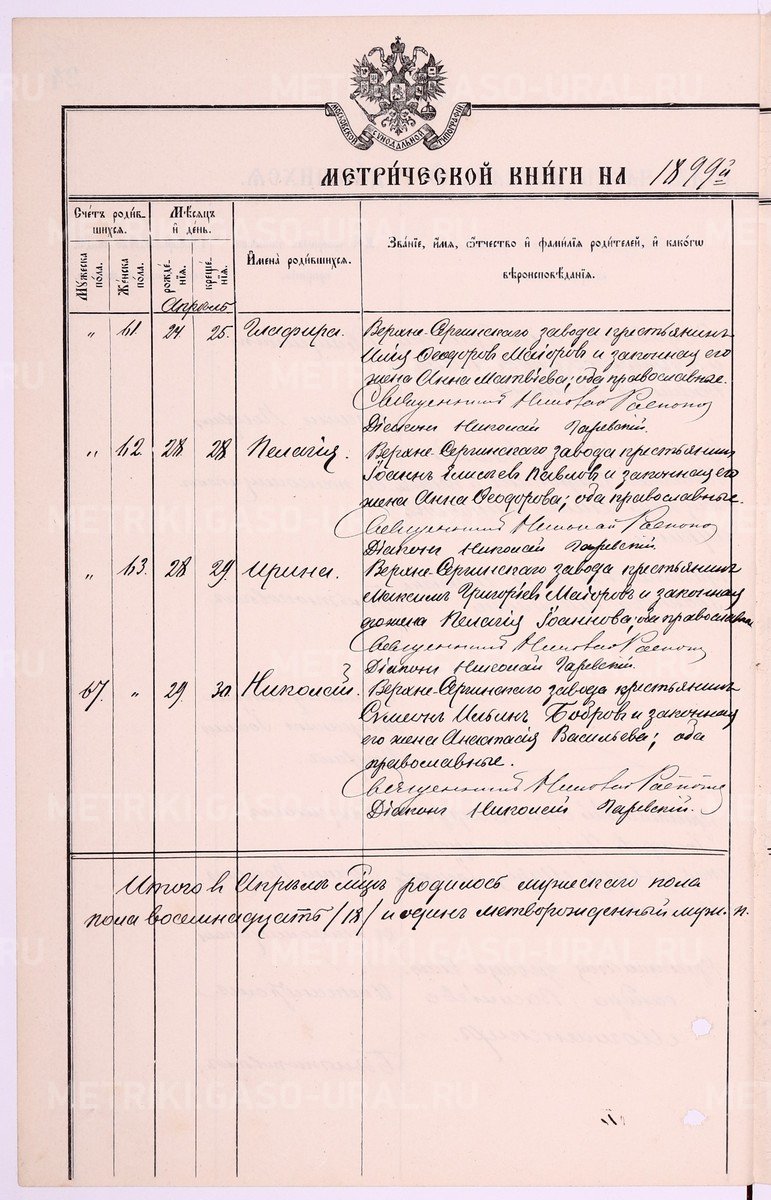 МОСКОВСКОЙ СѴНОДАЛЬНОЙ ТИПОГРАФІИ
МЕТРИ́ЧЕСКОЙ КНИ́ГИ НА 1899й
Счетъ роди́вшихся.
Мѣсяцъ и҆ де́нь.
И҆мена̀ роди́вшихся.
Зва́ніе, и҆́мя, ѻ҆́тчество и҆ фами́лія роди́телей, и҆ како́гѡ вѣроисповѣ́данія.
Му́жеска по́ла.
Же́нска по́ла.
рожде́нія.
креще́нія.
Апрѣль
„ 61 24. 25. Глафира. Верхне-Сергинскаго завода крестьянинъ
Илія Ѳеодоров Маіоров и законная его
жена Анна Матвѣева; оба православные.
Священникъ Николай
Діаконъ Николай Паревскій.
„ 62. 28 28 Пелагія. Верхне-Сергинскаго завода крестьянинъ
Іоаннъ Елисѣев Павлов и законная его
жена Анна Ѳеодорова; оба православные.
Священникъ Николай
Діаконъ Николай Паревскій.
„ 63. 28 29. Ирина. Верхне-Сергинскаго завода крестьянинъ
Максимъ Григорьев Маіоров и законная
его жена Пелагія Іоаннова; оба православные
Священникъ Николай
Діаконъ Николай Паревскій.
67. „ 29. 30. Николай. Верхне-Сергинскаго завода крестьянинъ
Сумеонъ Ильинъ Бобров и законная
его жена Анастасія Васильева; оба
православные.
Священникъ Николай
Діаконъ Николай Паревскій.
Итого в Апрѣлѣ мцѣ родилось мужескаго пола
пола восемнадцать /18/ и одинъ метворожденный муж. п.
METRIKI.GASO-URAL.RU